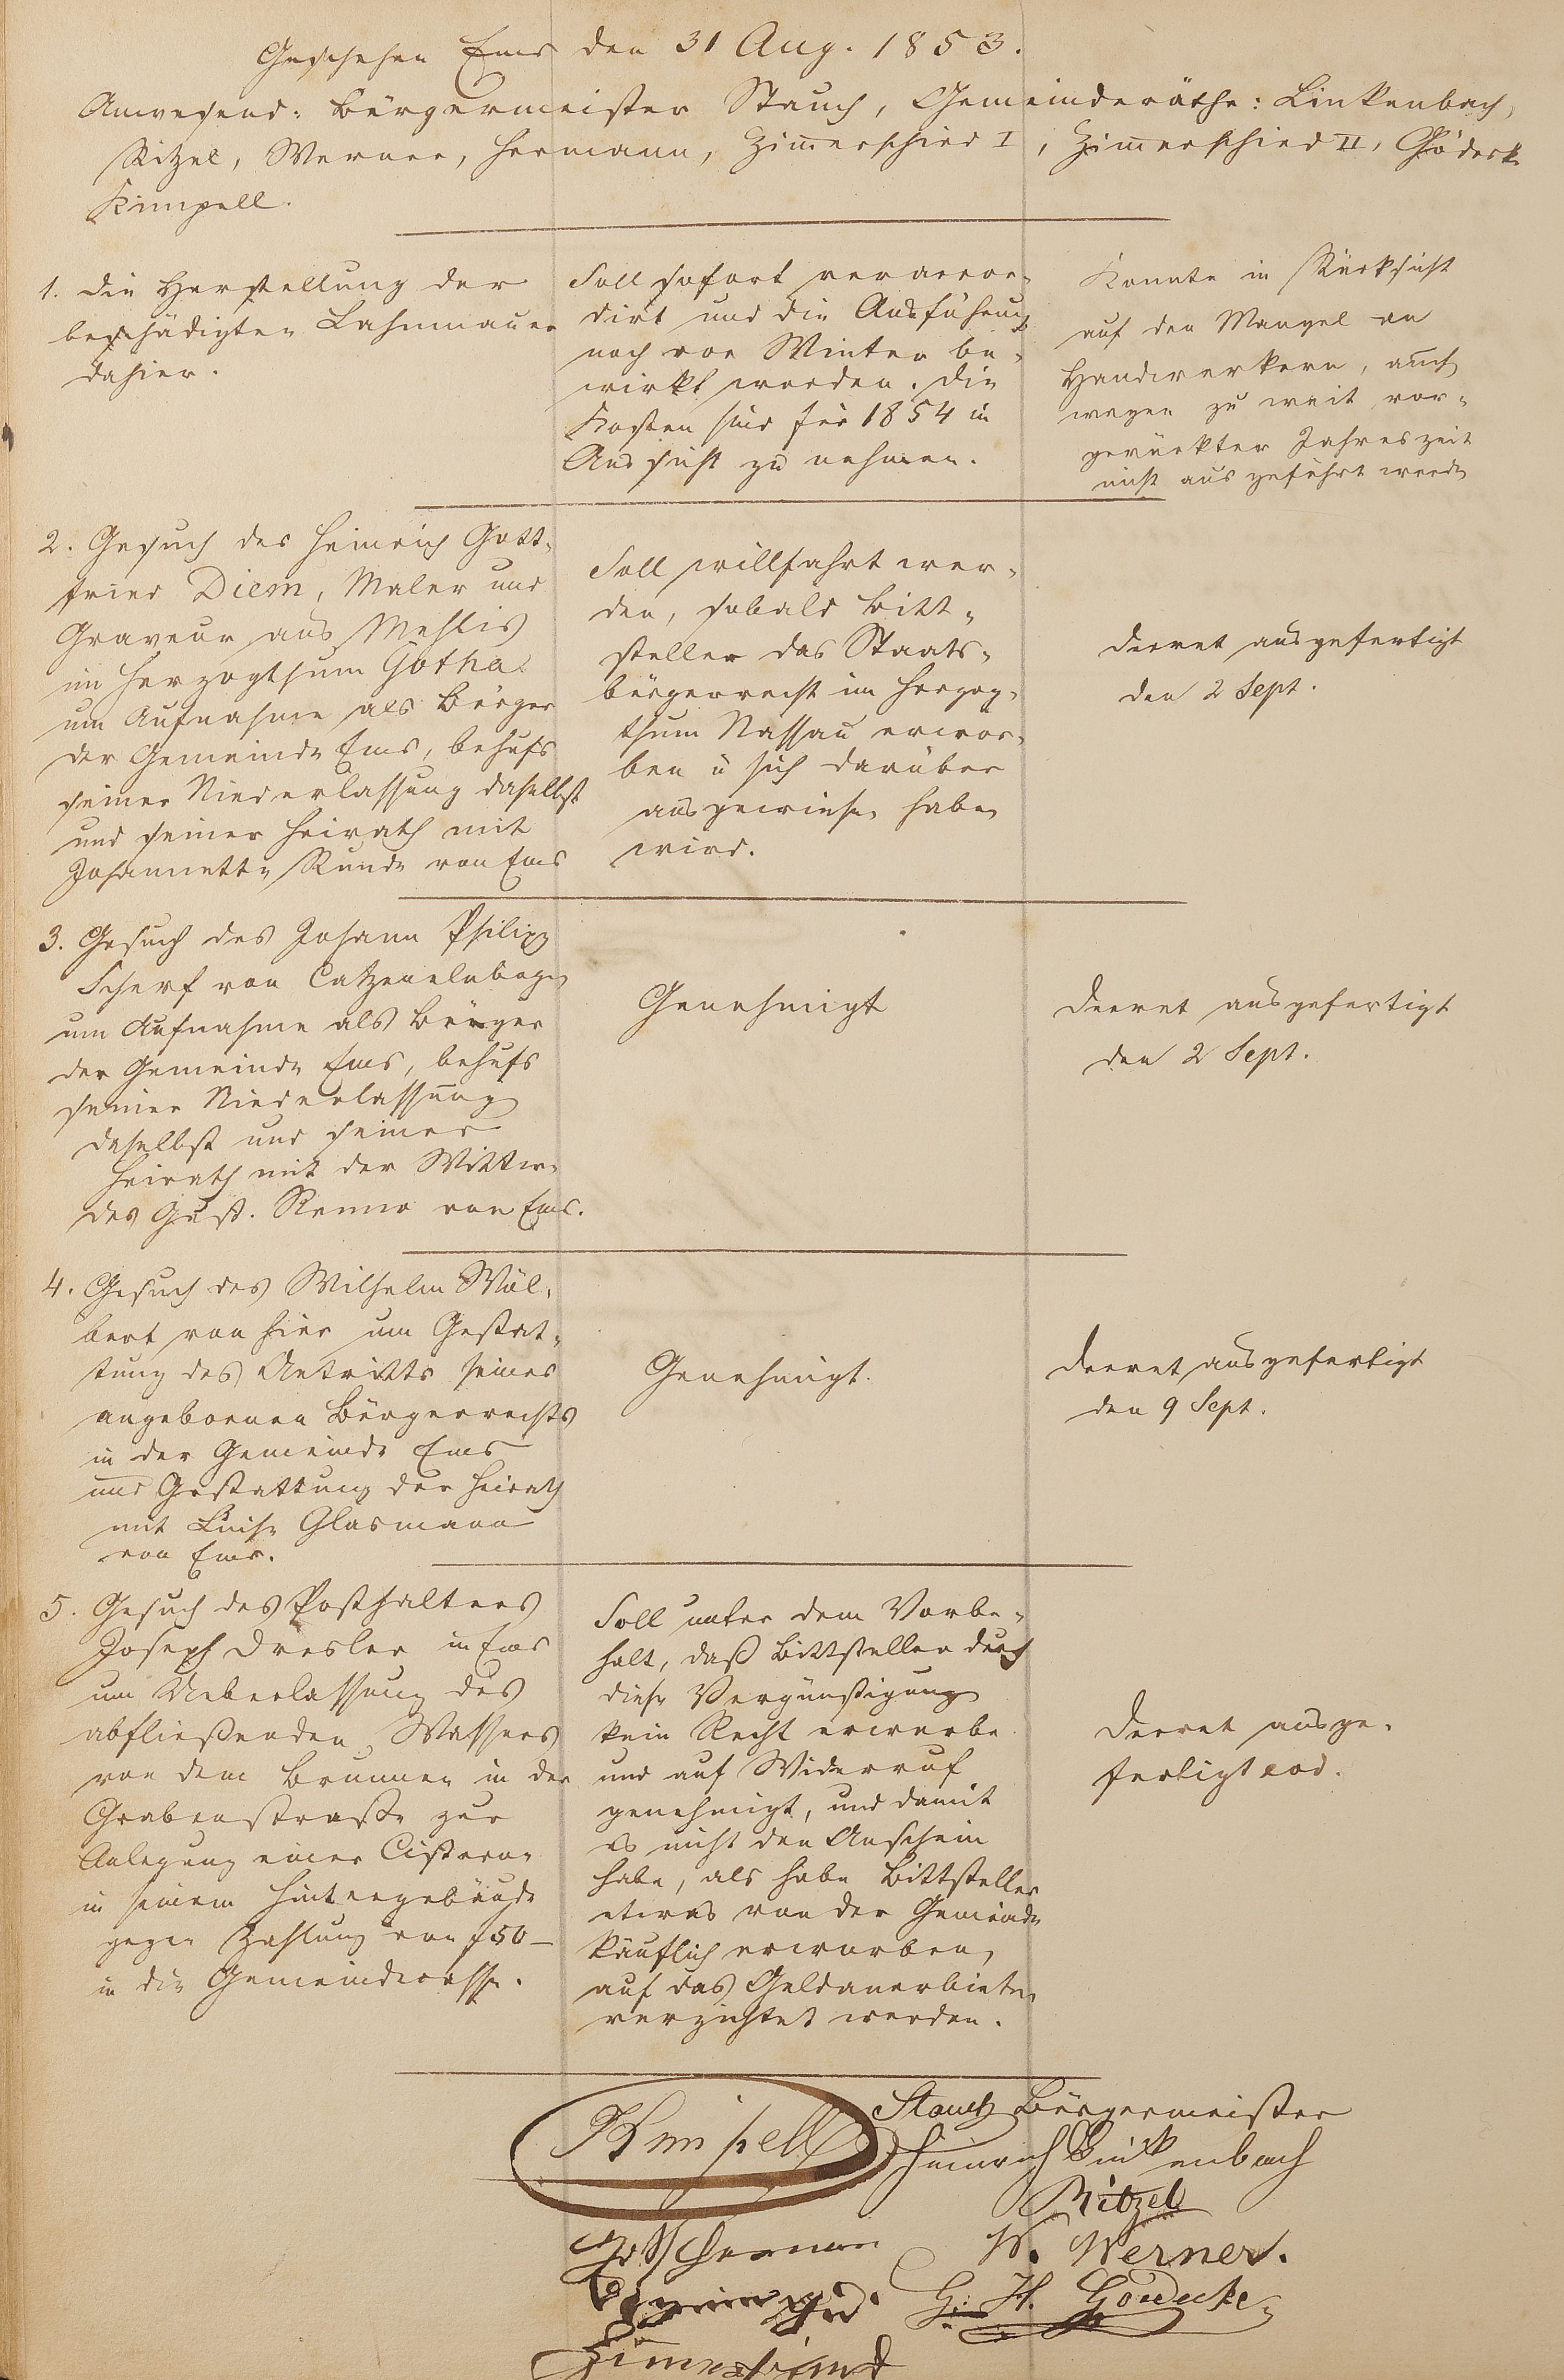 Geschehen Ems den 31 Aug. 1853.
Anwesend: Bürgermeister Stauch, Gemeinderäthe: Linkenbach,
Ritzel, Werner, Hermann, Zim̄erschied I, Zim̄erschied II, Gödecke
Kimpell.
1. Die Herstellung der
beschädigten Lahnmauer
dahier.
Soll sofort veraccor-
dirt und die Ausführung
noch vor Winter be-
wirkt werden. Die
Kosten sind für 1854 in
Aussicht zu nehmen.
Konnte in Rücksicht
auf den Mangel an
Handwerkern, auch
wegen zu weit vor-
gerückter Jahreszeit
nicht ausgeführt werden
2. Gesuch des Heinrich Gott-
fried Diem, Maler und
Graveur aus Mehlis
im Herzogthum Gotha
um Aufnahme als Bürger
der Gemeinde Ems, behufs
seiner Niederlassung daselbst
und seiner Heirath mit
Johannette Runde von Ems
Soll willfahrt wer-
den, sobald Bitt-
steller das Staats-
bürgerrecht im Herzog-
thum Nassau erwor-
ben u sich darüber
ausgewiesen haben
wird.
Decret ausgefertigt
den 2 Sept.
3. Gesuch des Johann Philipp
Scherf von Catzenelnbogen
um Aufnahme als Bürger
der Gemeinde Ems, behufs
seiner Niederlassung
daselbst und seiner
Heirath mit der Wittwe
des Gust. Renno von Ems.
Genehmigt
Decret ausgefertigt
den 2 Sept.
4. Gesuch des Wilhelm Wöl-
bert von hier um Gestat-
tung des Antritts seines
angebornen Bürgerrechts
in der Gemeinde Ems
und Gestattung der Heirath
mit Luise Glasmann
von Ems.
Genehmigt.
Decret ausgefertigt
den 9 Sept.
5. Gesuch des Posthalters
Joseph Dresler in Ems
um Ueberlassung des
abfließenden Wassers
von dem Brunnen in der
Grabenstraße zur
Anlegung einer Cisterne
in seinem Hintergebäude
gegen Zahlung von f 50 —
in die Gemeindecasse.
Soll unter dem Vorbe-
halt, daß Bittsteller durch
diese Vergünstigung
kein Recht erwerbe
und auf Widerruf
genehmigt, und damit
es nicht den Anschein
habe, als habe Bittsteller
etwas von der Gemeinde
käuflich erworben,
auf das Geldanerbieten
verzichtet werden.
Decret ausge-
fertigt eod.
Kimpell
Stauch Bürgermeister
Heinrich Linkenbach
Ritzel
Hermann
W. Werner.
G. H. Gödecke
Zimmerschied